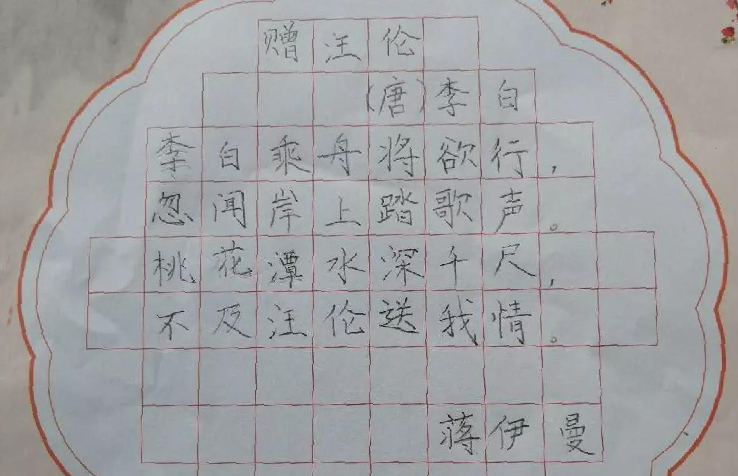 赠汪伦
(唐)李白
李白乘舟将欲行,
忽闻岸上踏歌声。
桃花潭水深千尺,
不及汪伦送我情。
蒋伊曼